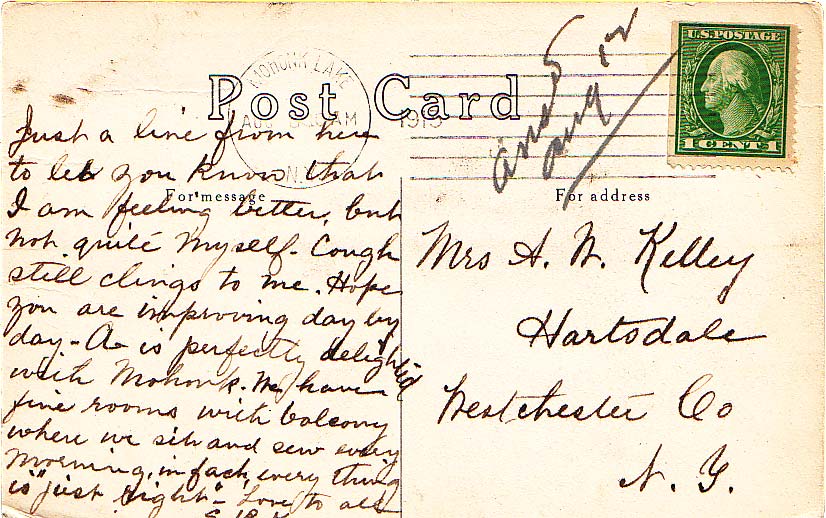 MOHONK LAKE
AUG AM
N.Y.
1913
Post Card
U.S. POSTAGE
1 CENT 1
ansd
aug 12
For message
For address
Just a line from here
to let you know that
I am feeling better, but
not quite myself. Cough
still clings to me. Hope
you are improving day by
day - A- is perfectly delighted
with Mohonk. We have
fine rooms with balcony
where we sit and sew every
morning, in fact, every thing
is "just right" - Love to all
Mrs A. W. Kelley
Hartsdale
Westchester Co
N. Y.